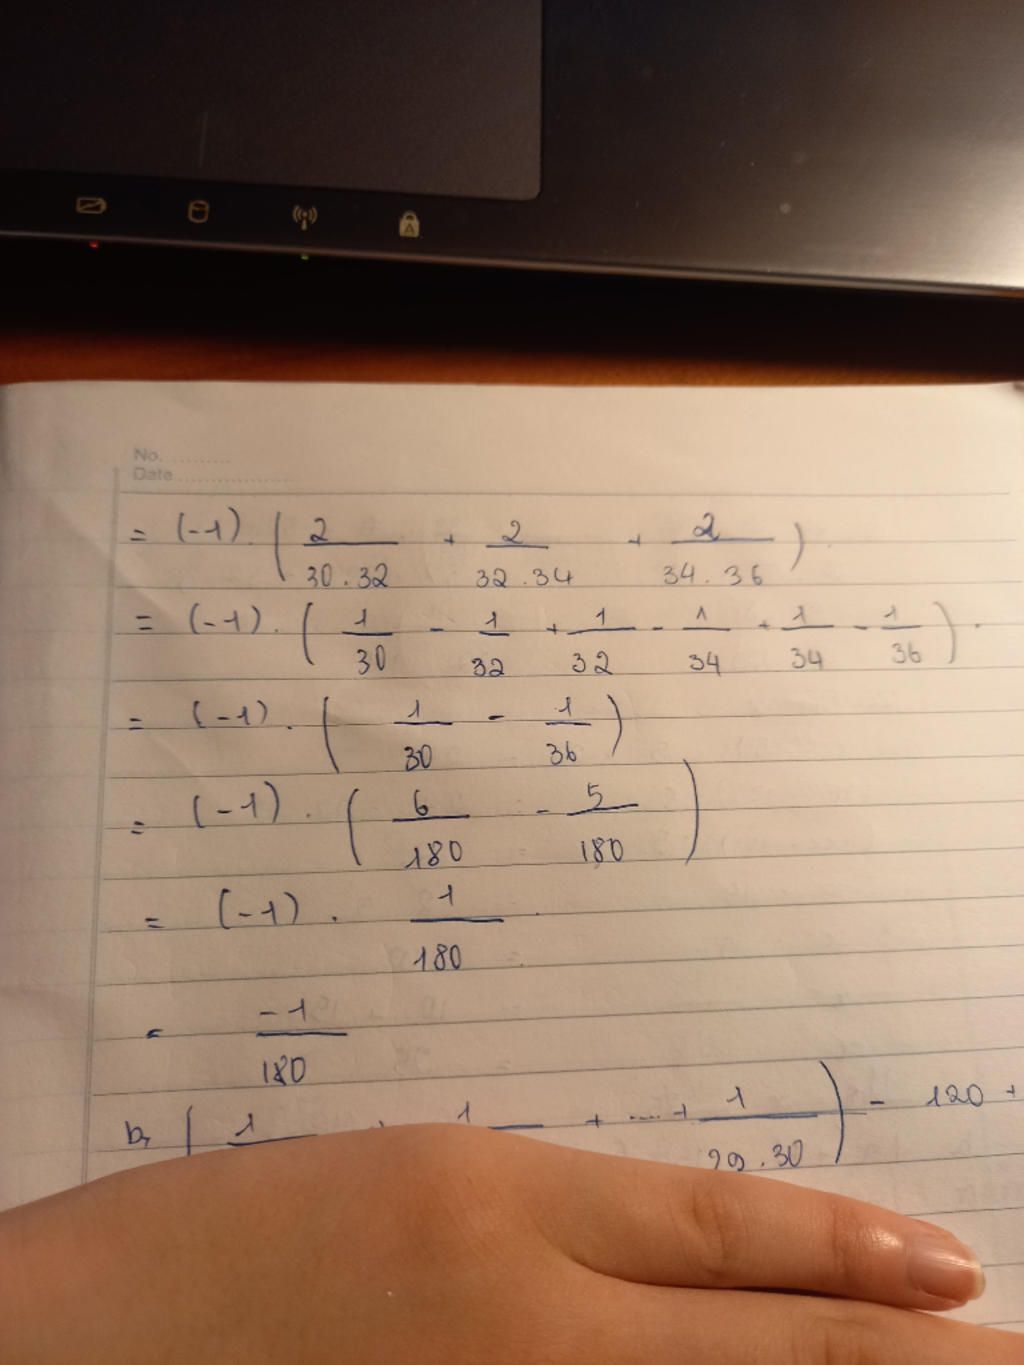 No. ..........
Date ....................
= (-1) . ( 2/30.32 + 2/32.34 + 2/34.36 )
= (-1) . ( 1/30 - 1/32 + 1/32 - 1/34 + 1/34 - 1/36 ) .
= (-1) . ( 1/30 - 1/36 )
= (-1) . ( 6/180 - 5/180 )
= (-1) . 1/180
= -1/180
b, ( 1 + 1 + .... + 1/29.30 ) - 120 +